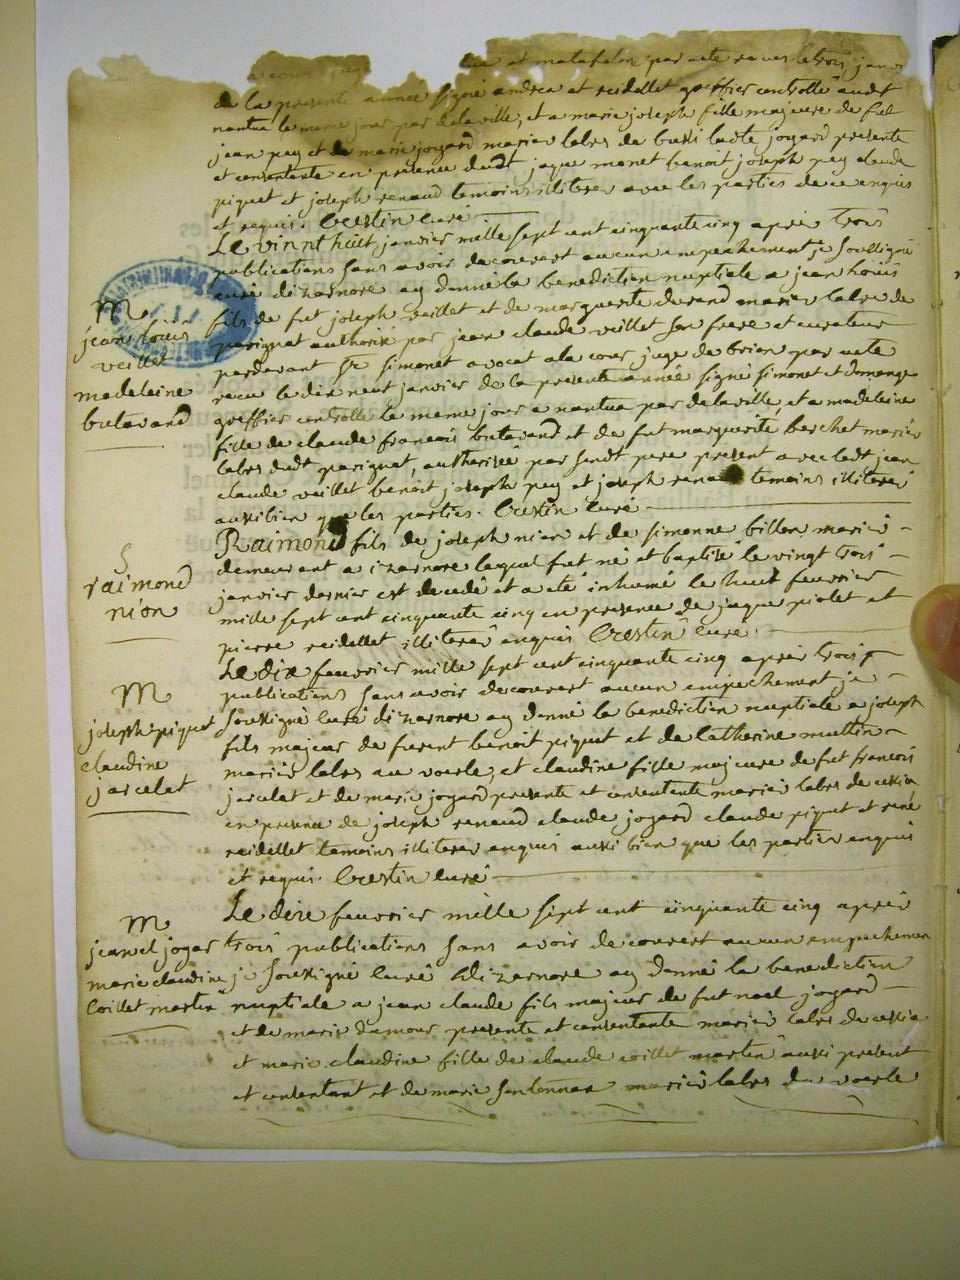 et matafelon par acte recu le trois janv
de la presente année signé andrea et reidellet greffier controllé audt
nantua le meme jour par delaville, et a marie joseph fille majeure de fut
jean pey et de marie jogard mariez labrs de bussi ladte jogard presente
et consentante en presence dudt jaque monet benoit joseph pey claude
piquet et joseph renaud temoins illiterez avec les parties de ce enquis
et requis. Crestin curé
Le vinnt huit janvier mille sept cent cinquante cinq apres trois
publications sans avoir decouvert aucun empechement je soussigné
curé dizarnore ay donné la benediction nuptiale a jean louis
fils de fut joseph veillet et de marguerite durand mariez labrs de
parignat authorisé par jean claude veillet son frere et curateur
pardavant Sr simonet avocat a la cour juge de brion par acte
recu le dix neuf janvier de la presente année signé simonet et domange
greffier controllé le meme jour a nantua par delaville, et a madeleine
fille de claude francois butavand et de fut marguerite berchet mariez
labrs dudt parignat, authorisée par sondt pere present avec ledt jean
claude veillet benoit joseph pey et joseph renaud temoins illiterez
aussi bien que les parties. Crestin curé
M
jean louis
veillet
madeleine
butavand
Raimond fils de joseph nion et de simonne billon mariez
demeurant a izarnore lequel fut né et baptisé le vingt trois
janvier dernier est decedé et a eté inhumé le huit feuvrier
mille sept cent cinquante cinq en presence de jaque piolet et
pierre reidellet illiterez enquis Crestin curé.
S
raimond
nion
Le dix feuvrier mille sept cent cinquante cinq apres trois
publications sans avoir decouvert aucun empechement je
soussigné curé dizarnore ay donné la benediction nuptiale a joseph
fils majeur de furent benoit piquet et de Catherine muttin
mariez labrs au voerle, et claudine fille majeure de fut francois
jarcelat et de marie jogard presente et consentante mariez labrs de cessia
en presence de joseph renaud claude jogard claude piquet et rené
reidellet temoins illiterez enquis aussi bien que les parties enquis
et requis. Crestin curé
M
joseph piquet
claudine
jarcelat
Le dixe feuvrier mille sept cent cinquante cinq apres
trois publications sans avoir decouvert aucun empechement
je soussigné curé dizarnore ay donné la benediction
nuptiale a jean claude fils majeur de fut noel jogard
et de marie damour presente et consentante mariez labrs de cessia
et marie claudine fille de claude coillet martin aussi present
et consentant et de marie mariez labrs du voerle
M
jean cl jogar
marie claudine
Coillet martin